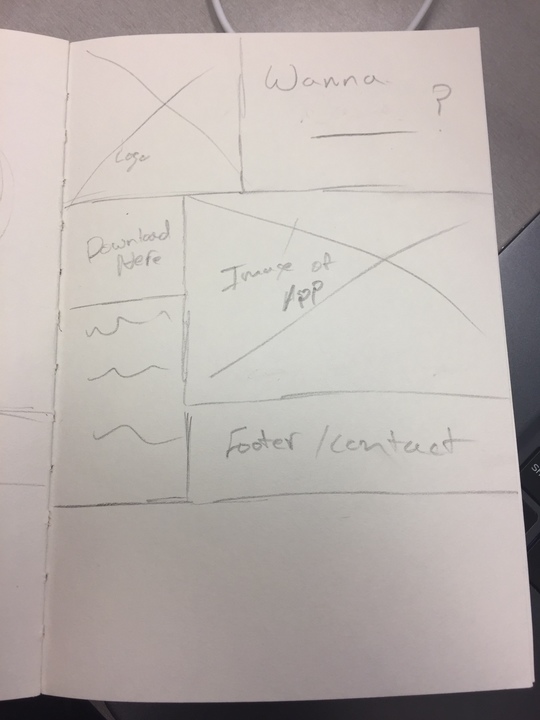 Logo
Wanna
?
Download
Here
Image of
App
Footer/contact